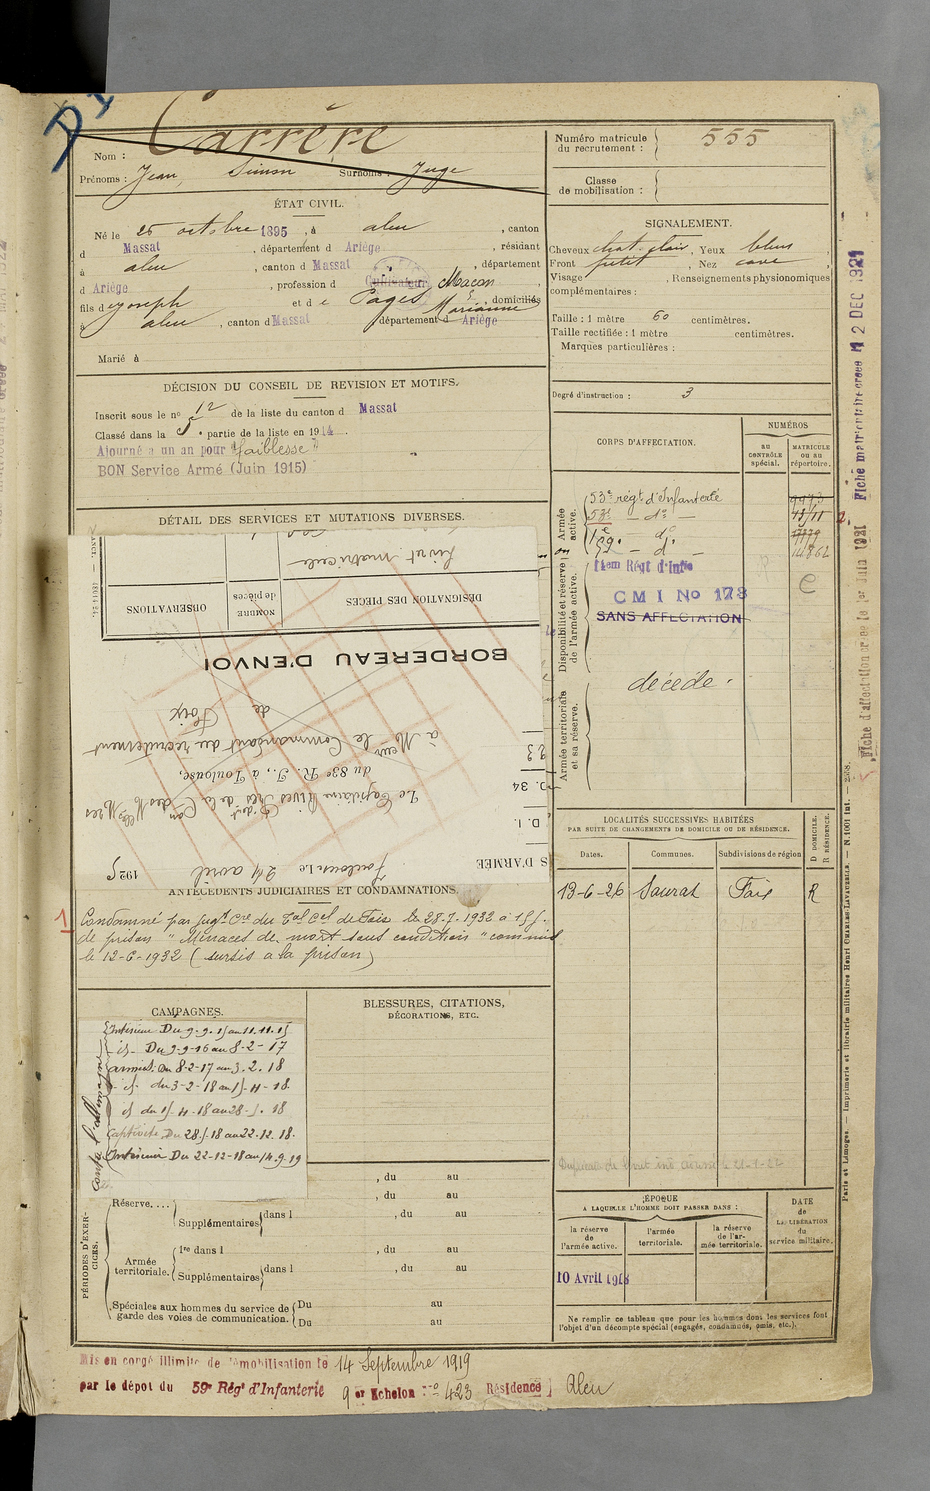 Carrère
Nom :
Prénoms : Jean, Simon Surnoms : Juge
ÉTAT CIVIL.
Né le 25 octobre 1895, à aleu, canton
d Massat, département d Ariège, résidant
à aleu, canton d Massat, département
d Ariège, profession d Cultivateur Maçon,
fils de Joseph et de Pagès Marianne, domiciliés
à aleu, canton d Massat département d Ariège
Marié à
DÉCISION DU CONSEIL DE REVISION ET MOTIFS.
Inscrit sous le nº 12 de la liste du canton d Massat
Classé dans la 5e partie de la liste en 1914
Ajourné a un an pour "Faiblesse"
BON Service Armé (Juin 1915)
DÉTAIL DES SERVICES ET MUTATIONS DIVERSES.
Livret matricule
DÉSIGNATION DES PIÈCES
NOMBRE de pièces
OBSERVATIONS
BORDEREAU D'ENVOI
de
Foix
à Mr le Commandant du recrutement
du 83e R. I., à Toulouse,
Le Capitaine Rives
Toulouse 24 avril 1925
S D'ARMÉE
D. I.
D. 34
ANTÉCÉDENTS JUDICIAIRES ET CONDAMNATIONS.
Condamné par jugt Cre du Tal Cel de Foix le 28.7.1932 à 15 j.
de prison "Menaces de mort sous condition" commis
le 12-6-1932 (sursis a la prison)
CAMPAGNES.
contre l'allemagne
Intérieur Du 9-9-15 au 11.11.15
id Du 9-9-16 au 8-2-17
armées Du 8-2-17 au 3.2.18
id du 3-2-18 au 15-4-18
id du 15-4-18 au 28-5.18
Captivité Du 28.5.18 au 22-12.18.
Intérieur Du 22-12-18 au 14.9.19
BLESSURES, CITATIONS,
DÉCORATIONS, ETC.
PÉRIODES D'EXERCICES.
, du au
, du au
Réserve....
Supplémentaires dans l , du au
Armée territoriale.
1re dans l , du au
Supplémentaires dans l , du au
Spéciales aux hommes du service de
garde des voies de communication.
Du au
Du au
Mis en congé illimité de démobilisation le 14 Septembre 1919
par le dépot du 59e Régt d'Infanterie 9er Echelon No 423 Résidence Aleu
Numéro matricule
du recrutement : 555
Classe
de mobilisation :
SIGNALEMENT.
Cheveux chat. clair, Yeux bleus
Front petit, Nez cave,
Visage , Renseignements physionomiques
complémentaires :
Taille : 1 mètre 60 centimètres.
Taille rectifiée : 1 mètre centimètres.
Marques particulières :
Degré d'instruction : 3
CORPS D'AFFECTATION.
NUMÉROS
au CONTRÔLE spécial.
MATRICULE ou au répertoire.
Armée active.
53e régt d'Infanterie
53e - do -
1er do
59e - do -
14862
Disponibilité et réserve de l'armée active.
14em Régt d'Infie
CMI No 173
SANS AFFECTATION
Armée territoriale et sa réserve.
décédé.
LOCALITÉS SUCCESSIVES HABITÉES
PAR SUITE DE CHANGEMENTS DE DOMICILE OU DE RÉSIDENCE.
Dates. Communes. Subdivisions de région
D DOMICILE.
R RÉSIDENCE.
13-6-26 Saurat Foix R
ÉPOQUE
A LAQUELLE L'HOMME DOIT PASSER DANS :
la réserve de l'armée active.
l'armée territoriale.
la réserve de l'armée territoriale.
DATE de LA LIBÉRATION du service militaire.
10 Avril 1918
Ne remplir ce tableau que pour les hommes dont les services font
l'objet d'un décompte spécial (engagés, condamnés, omis, etc.).
Fiche d'affectation créée le 1er Juin 1921
Fiche matriculaire créée le 12 DEC 1921
Paris et Limoges. — Imprimerie et librairie militaires Henri CHARLES-LAVAUZELLE. — N. 1001 int. —